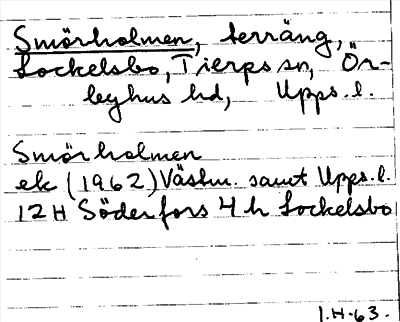 Smörholmen, terräng,
Sockelsbo, Tierps sn, Ör-
byhus hd, Upps. l.
Smörholmen
ek (1962) Västm. samt Upps. l.
12H Söderfors 4 h Sockelsbo
1.H-63.